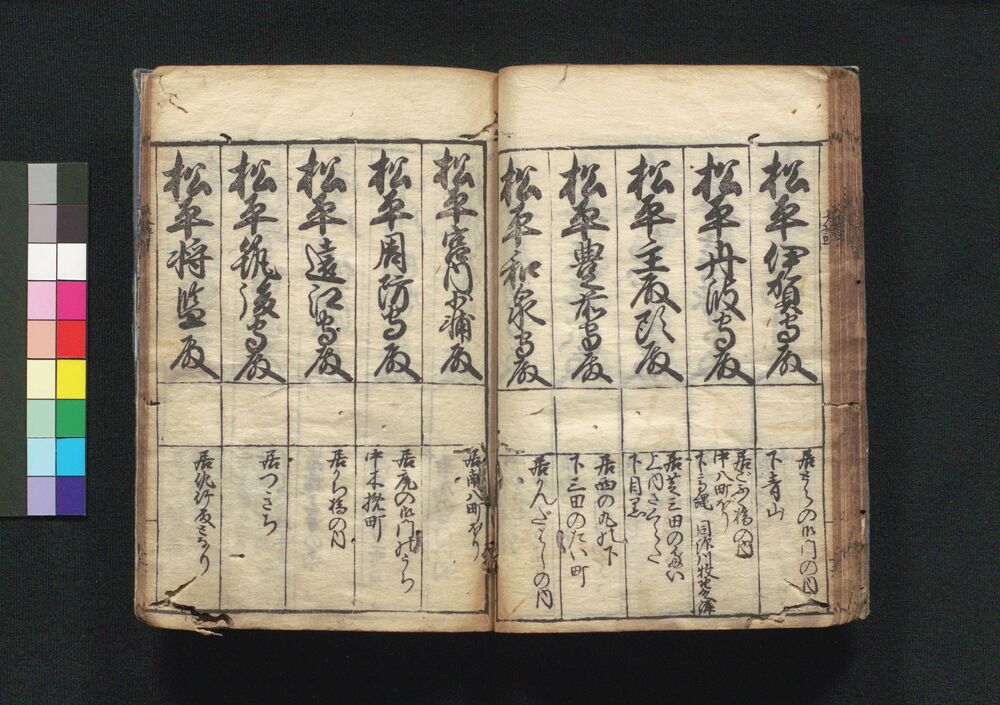 松平伊賀守殿
居さくらの御門の内
下青山
松平丹波守殿
居ごふく橋の内
中八町ぼり
下三田縄
松平主殿頭殿
居芝三田の
下目黒
松平豊前守殿
居西の丸の下
下三田のたい町
松平和泉守殿
居かんだばしの内
松平右衛門
居南八町ぼり
松平周防守殿
居虎の御門のうち
中木挽町
松平遠江守殿
居かぢ橋の内
松平筑後守殿
居つきち
松平将監殿